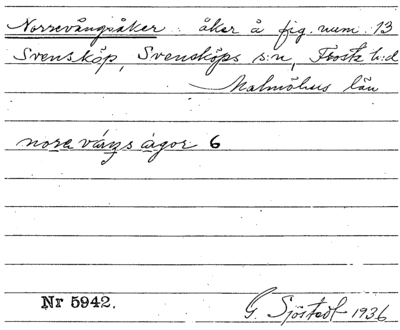 Norrevångsåker: åker å fig. num. 13
Svensköp, Svensköps s:n, Frosta h:d
Malmöhus län
nora vångs ågor 6
Nr 5942.
G. Sjöstedt 1936